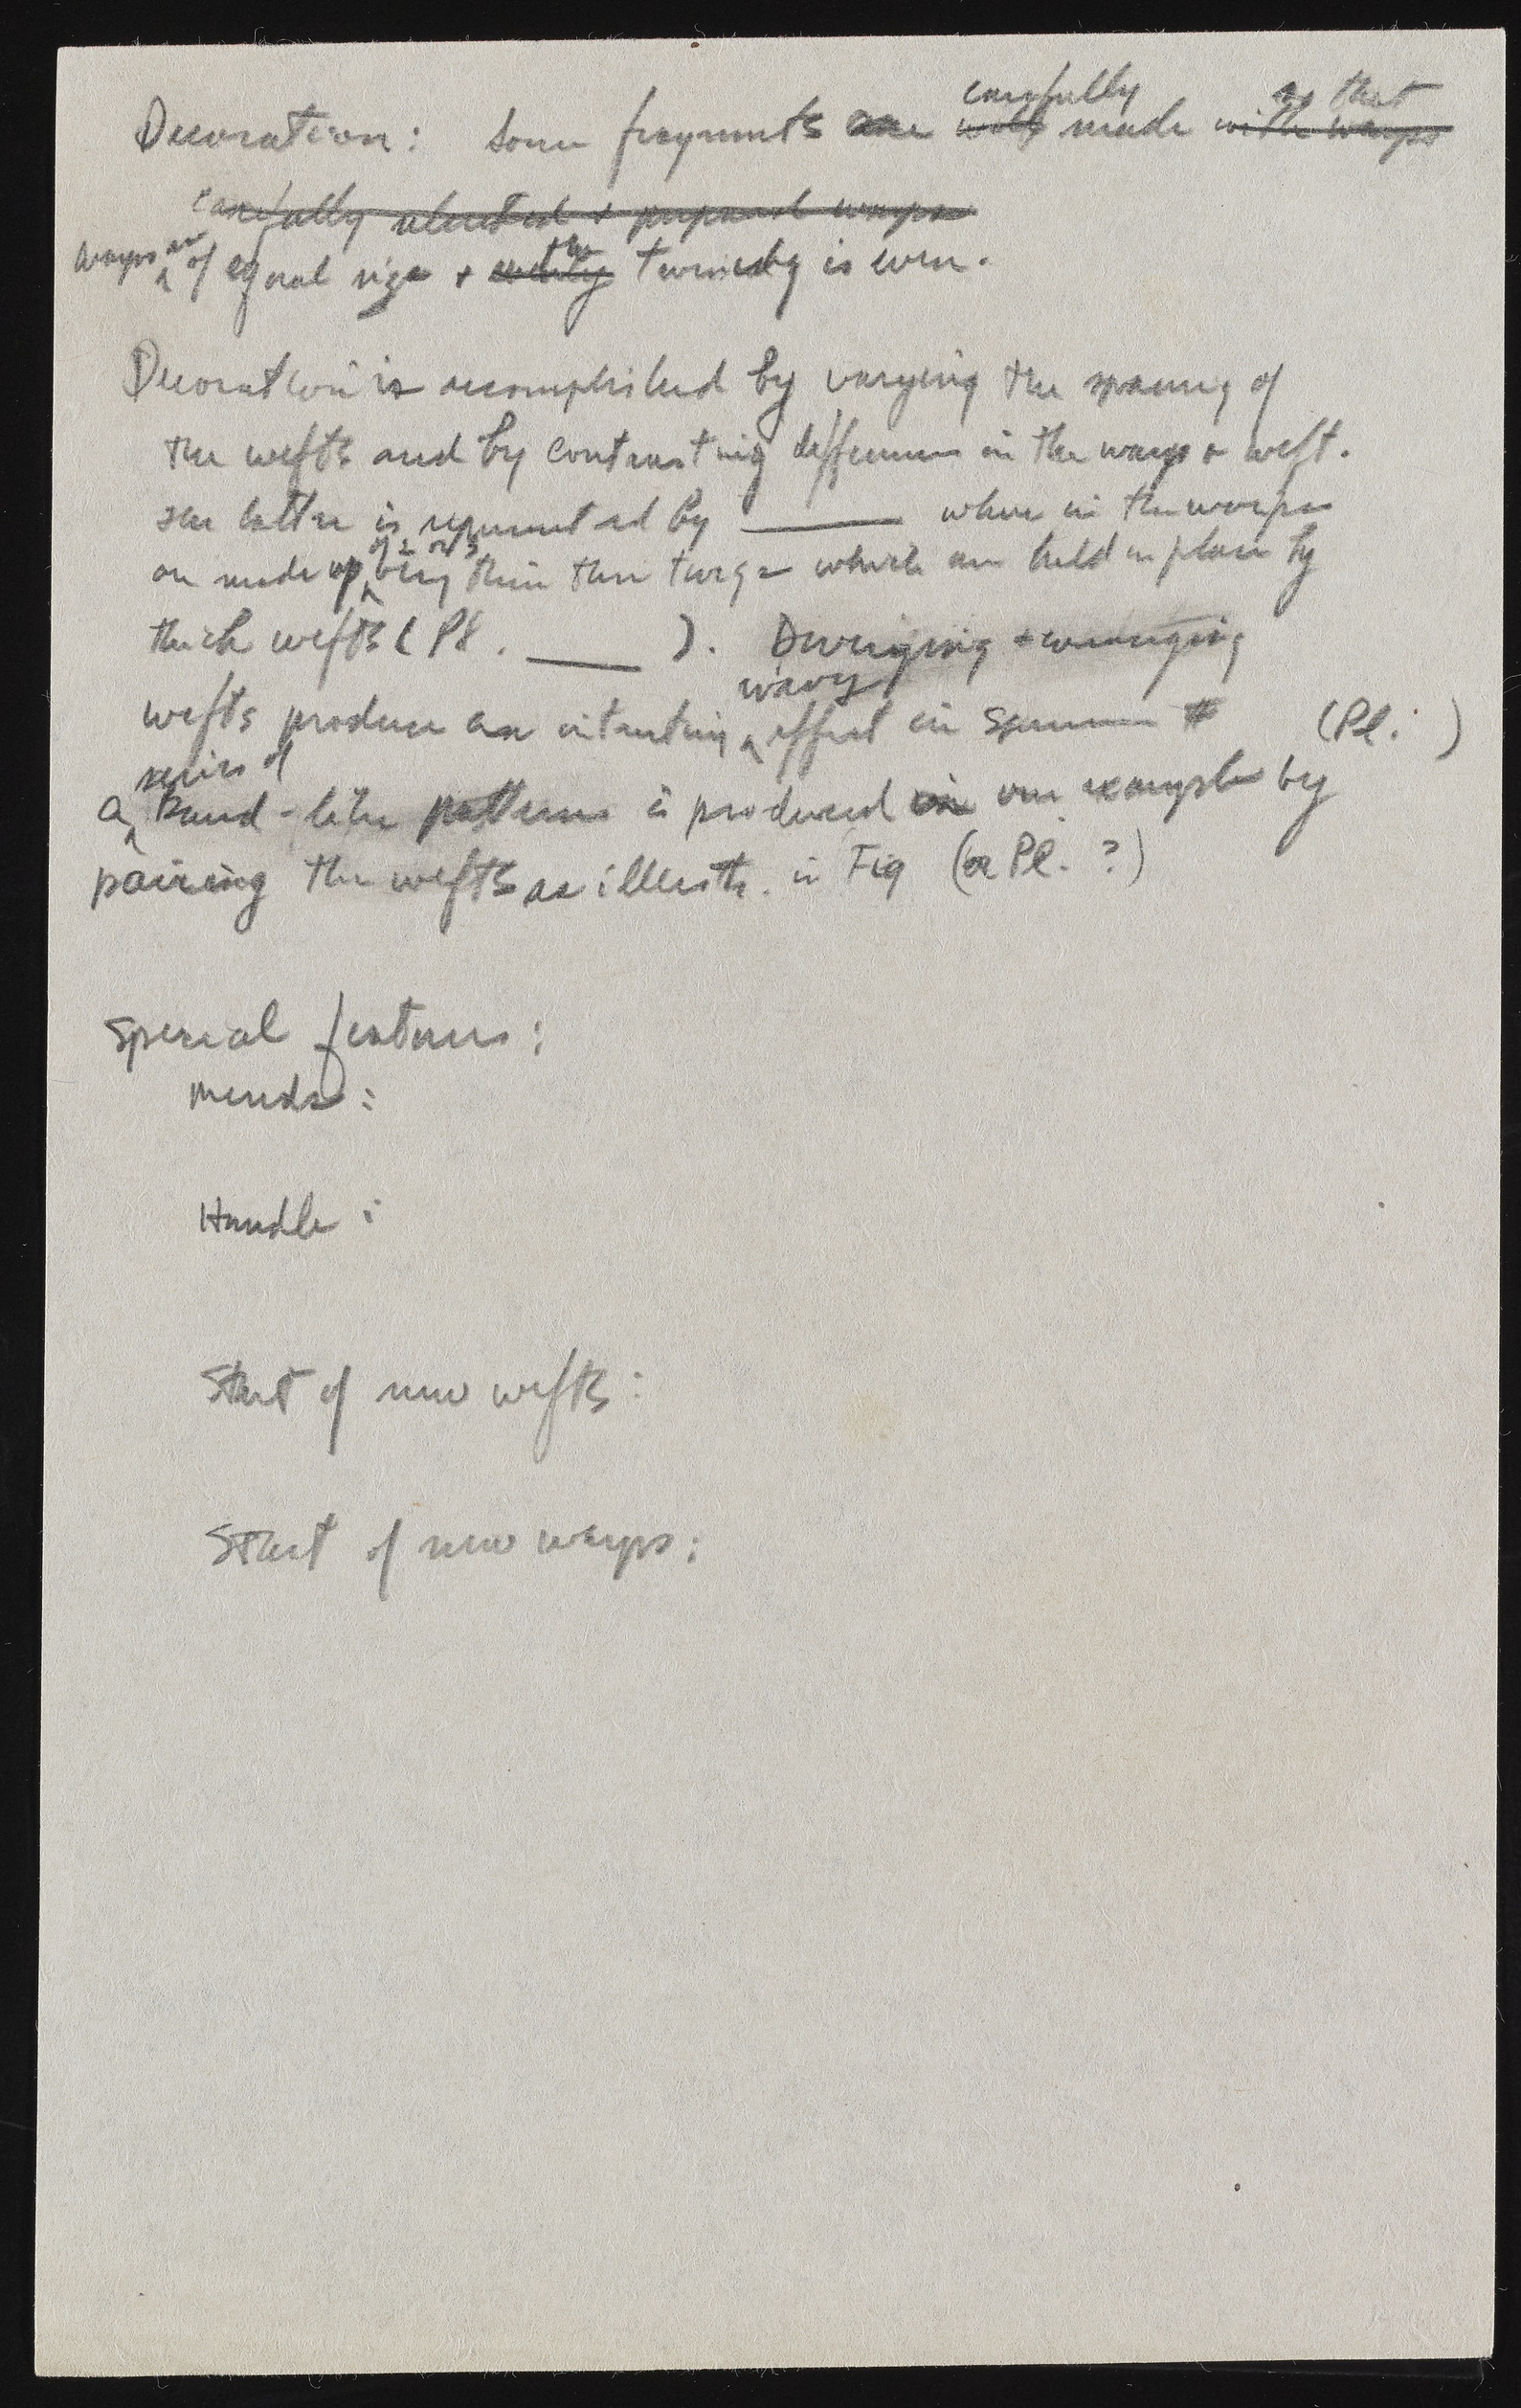 Decoration: Some fragments are well carefully made with warps so that
carefully selected + prepared warps
warps are of equal size + evenly the twining is even.
Decoration is accomplished by varying the spacing of
the wefts and by contrasting differences in the warp & weft.
The latter is represented by ______ where in the warps
are made up of 2 or 3 very thin twigs which are held in place by
thick wefts (Pl. ____ ). Diverging + converging
wefts produce an interesting wavy effect in specimen # (Pl. )
a series of Band-like patterns is produced in one example by
pairing the wefts as illustr. in Fig (or Pl. ?)
Special features:
Mends:
Handle:
Start of new wefts:
Start of new warps: